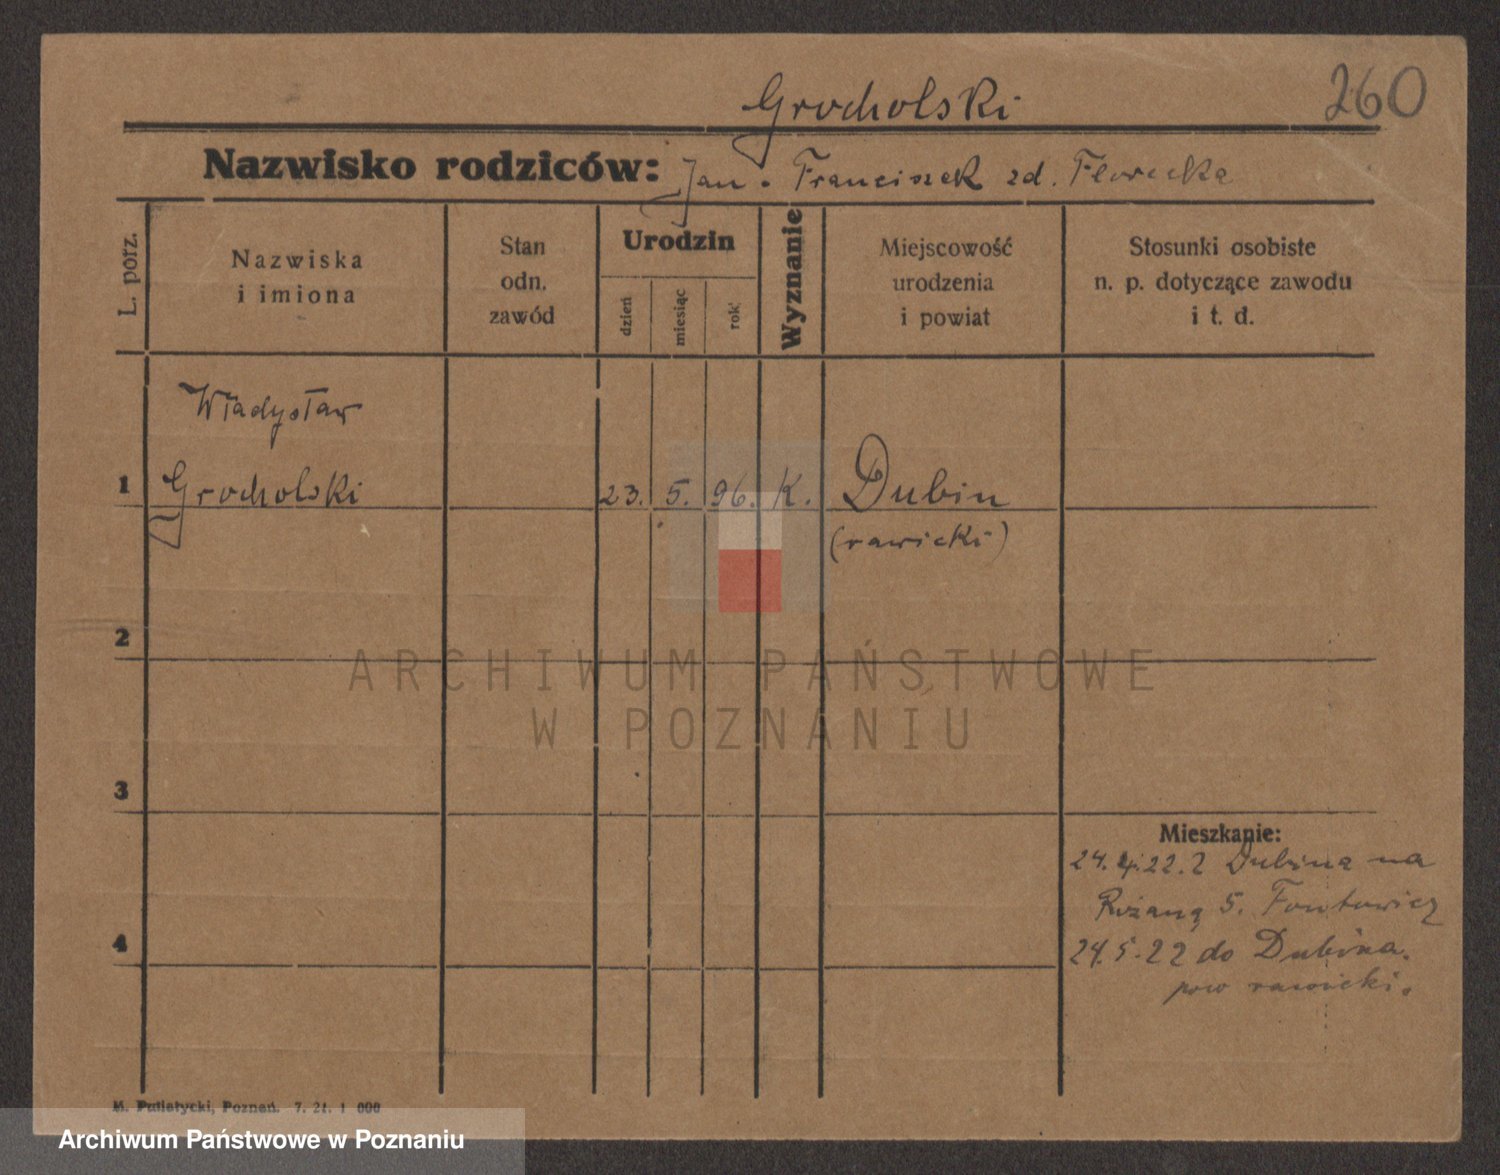 Grocholski
260
Nazwisko rodziców: Jan. Franciszek zd. Florecka
L. porz.
Nazwiska
i imiona
Stan
odn.
zawód
Urodzin
dzień
miesiąc
rok
Wyznanie
Miejscowość
urodzenia
i powiat
Stosunki osobiste
n. p. dotyczące zawodu
i t. d.
Władysław
1 Grocholski 23. 5. 96. K. Dubin
(rawicki)
2
ARCHIWUM PAŃSTWOWE
W POZNANIU
3
Mieszkanie:
24.4.22. z Dubina na
Różaną 5. Fontowicz
4
24.5.22 do Dubina.
pow rawicki.
M. Putiatycki, Poznań. 7. 21. 1 000
Archiwum Państwowe w Poznaniu